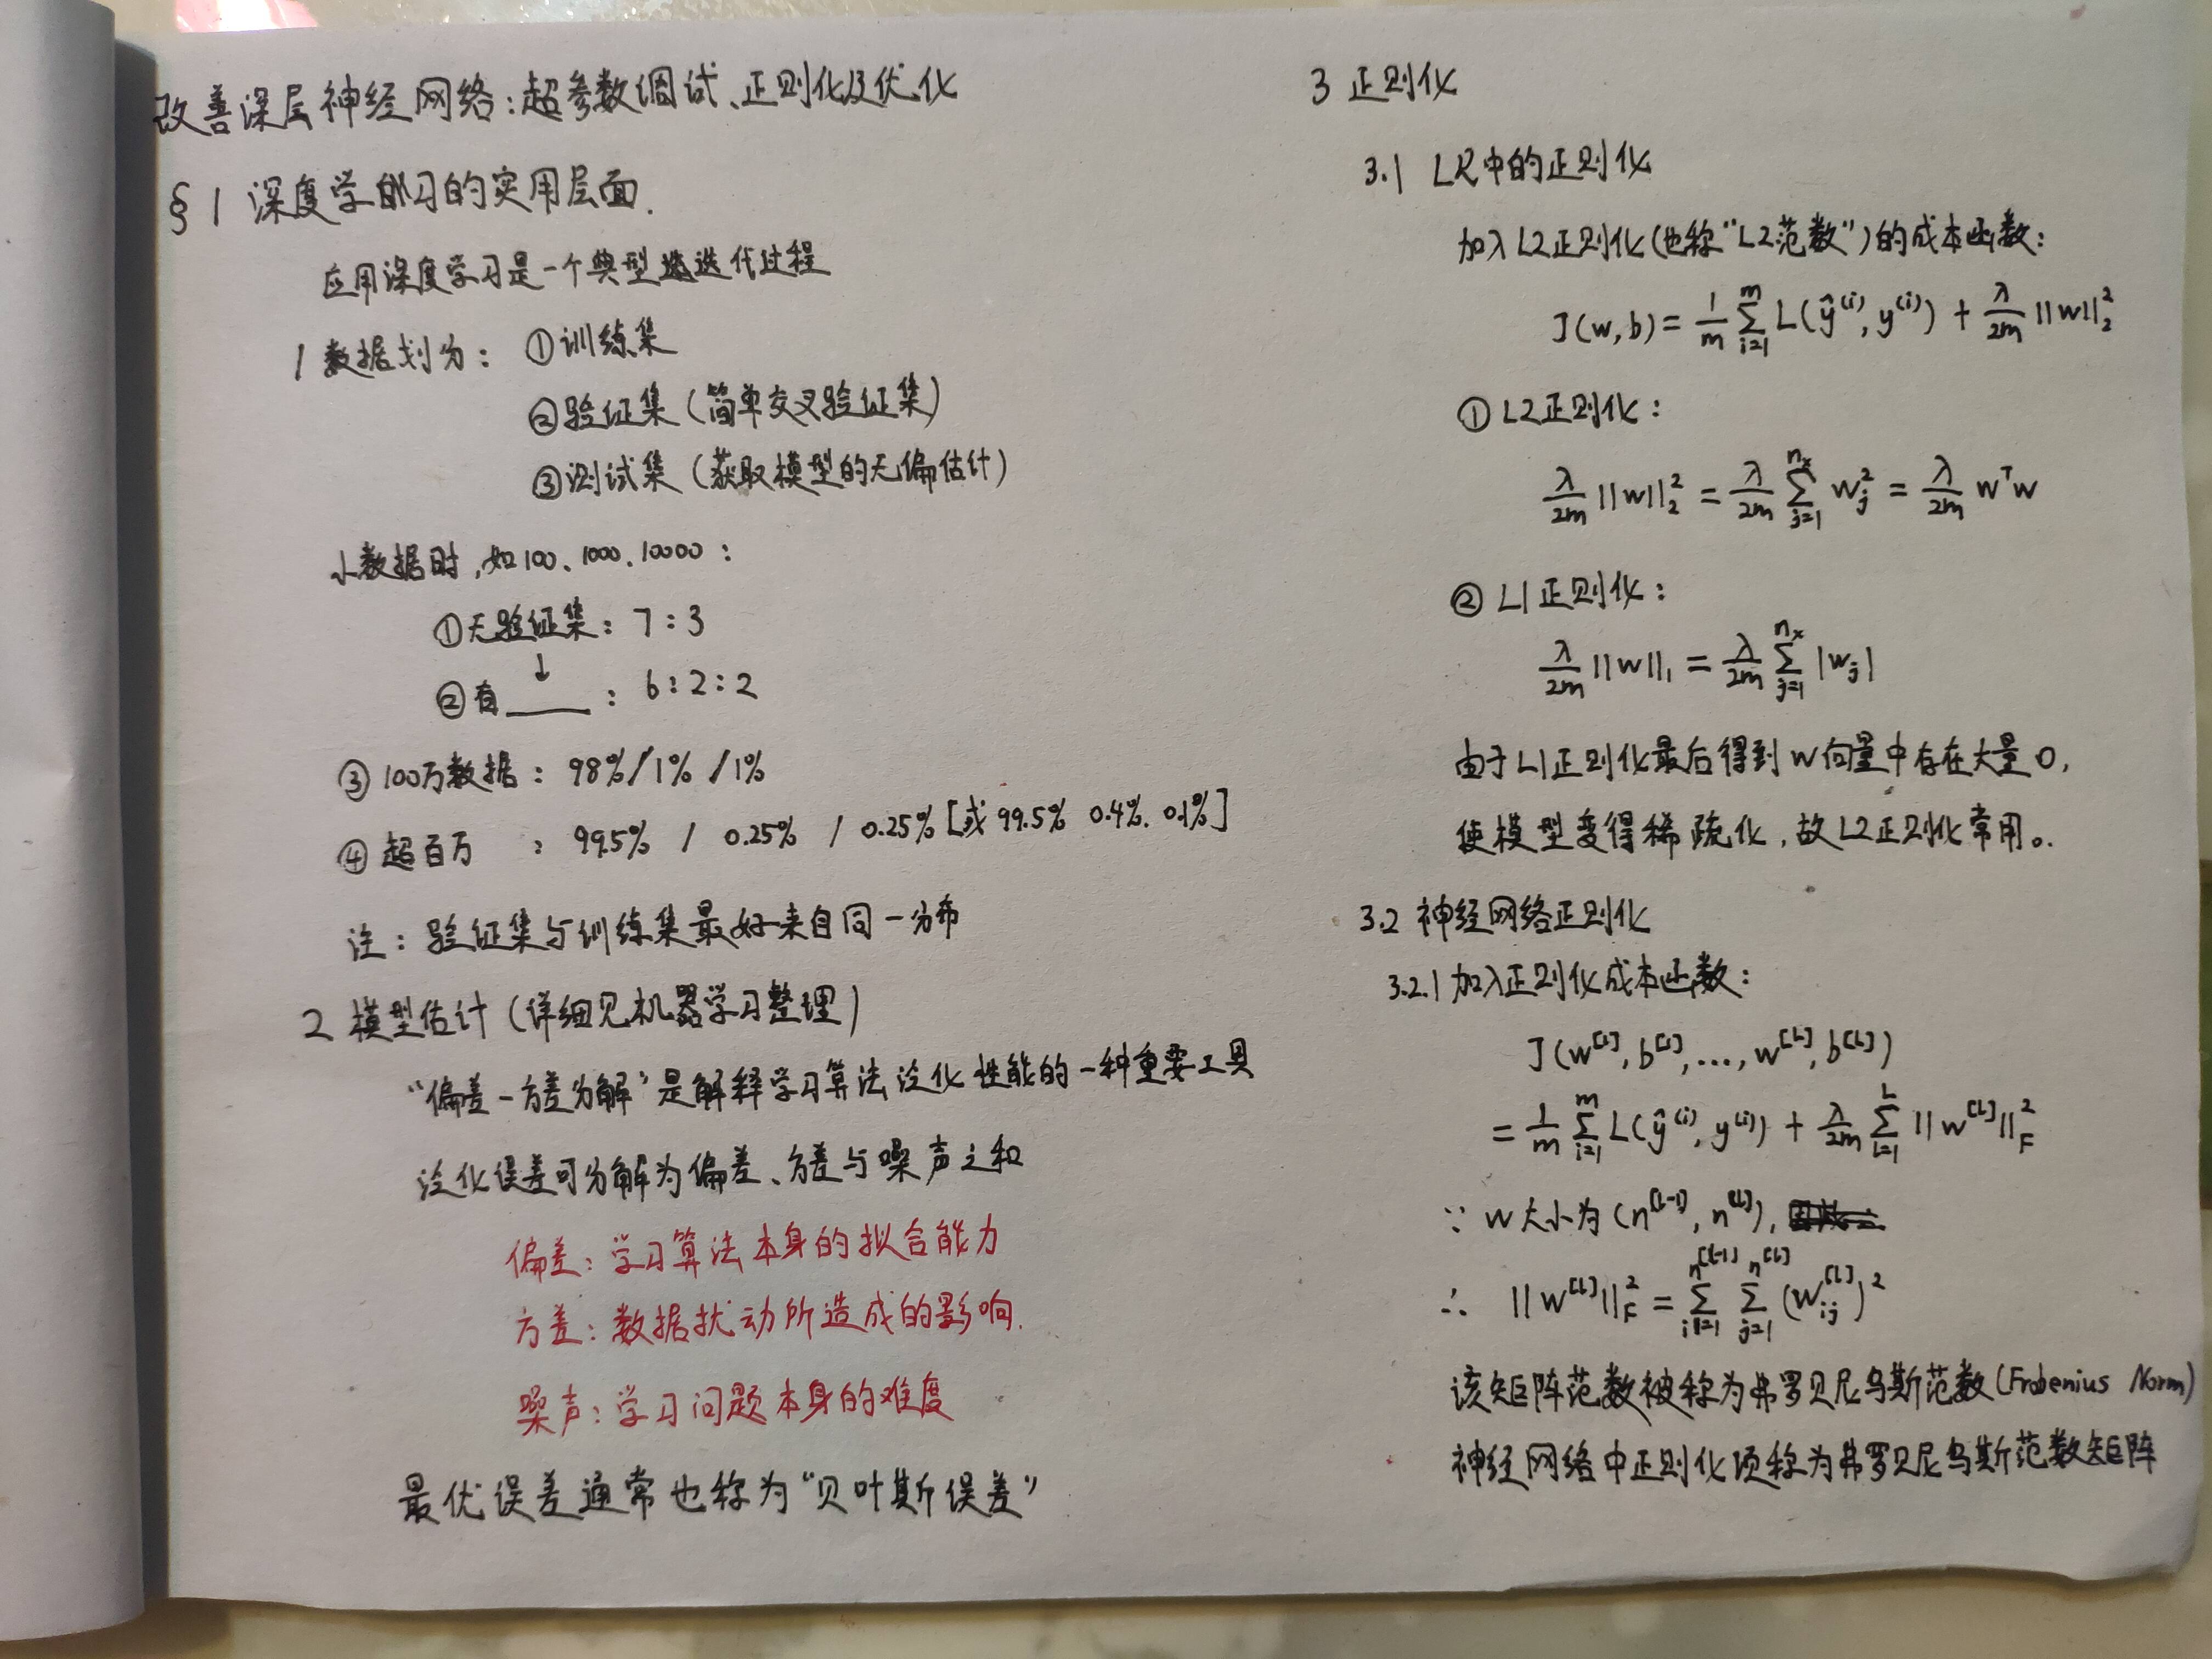 改善深层神经网络:超参数调试、正则化及优化
§1 深度学习的实用层面.
应用深度学习是一个典型迭代过程
1 数据划为: ①训练集
②验证集(简单交叉验证集)
③测试集(获取模型的无偏估计)
小数据时,如100、1000、10000:
①无验证集: 7:3
↓
②有____: 6:2:2
③100万数据: 98%/1%/1%
④超百万 : 99.5% / 0.25% / 0.25% [或99.5% 0.4%. 0.1%]
注: 验证集与训练集最好来自同一分布
2 模型估计(详细见机器学习整理)
“偏差-方差分解”是解释学习算法泛化性能的一种重要工具
泛化误差可分解为偏差、方差与噪声之和
偏差: 学习算法本身的拟合能力
方差: 数据扰动所造成的影响.
噪声: 学习问题本身的难度
最优误差通常也称为“贝叶斯误差”
3 正则化
3.1 LR中的正则化
加入L2正则化(也称“L2范数”)的成本函数:
J(w,b) = 1/m Σ_{i=1}^{m} L(ŷ^{(i)}, y^{(i)}) + λ/2m ||w||_2^2
①L2正则化:
λ/2m ||w||_2^2 = λ/2m Σ_{j=1}^{n_x} w_j^2 = λ/2m w^T w
②L1正则化:
λ/2m ||w||_1 = λ/2m Σ_{j=1}^{n_x} |w_j|
由于L1正则化最后得到w向量中存在大量0,
使模型变得稀疏化,故L2正则化常用。
3.2 神经网络正则化
3.2.1 加入正则化成本函数:
J(w^{[1]}, b^{[1]}, ..., w^{[L]}, b^{[L]})
= 1/m Σ_{i=1}^{m} L(ŷ^{(i)}, y^{(i)}) + λ/2m Σ_{l=1}^{L} ||w^{[l]}||_F^2
∵ w大小为(n^{[l-1]}, n^{[l]}),
∴ ||w^{[l]}||_F^2 = Σ_{i=1}^{n^{[l-1]}} Σ_{j=1}^{n^{[l]}} (w_{ij}^{[l]})^2
该矩阵范数被称为弗罗贝尼乌斯范数(Frobenius Norm)
神经网络中正则化项称为弗罗贝尼乌斯范数矩阵